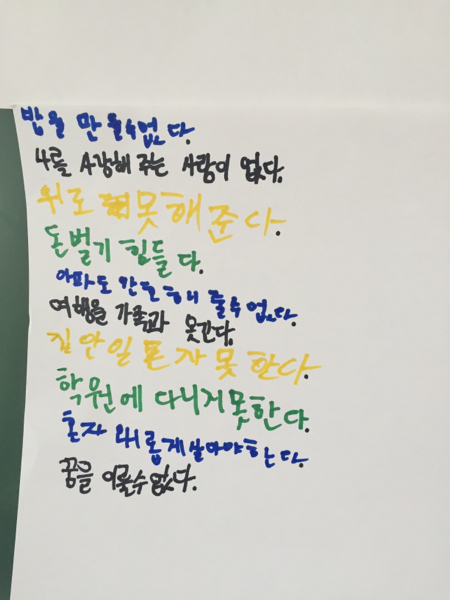 밥을 만 들수없다.
나를 사랑해 주는 사람이 없다.
위로 못해 준다.
돈벌기 힘들다.
아파도 간호해 줄수 없다.
여행을 가족과 못간다.
집안일 혼자 못 한다.
학원에 다니지 못한다.
혼자 외롭게 살아야 한다.
꿈을 이룰수없다.